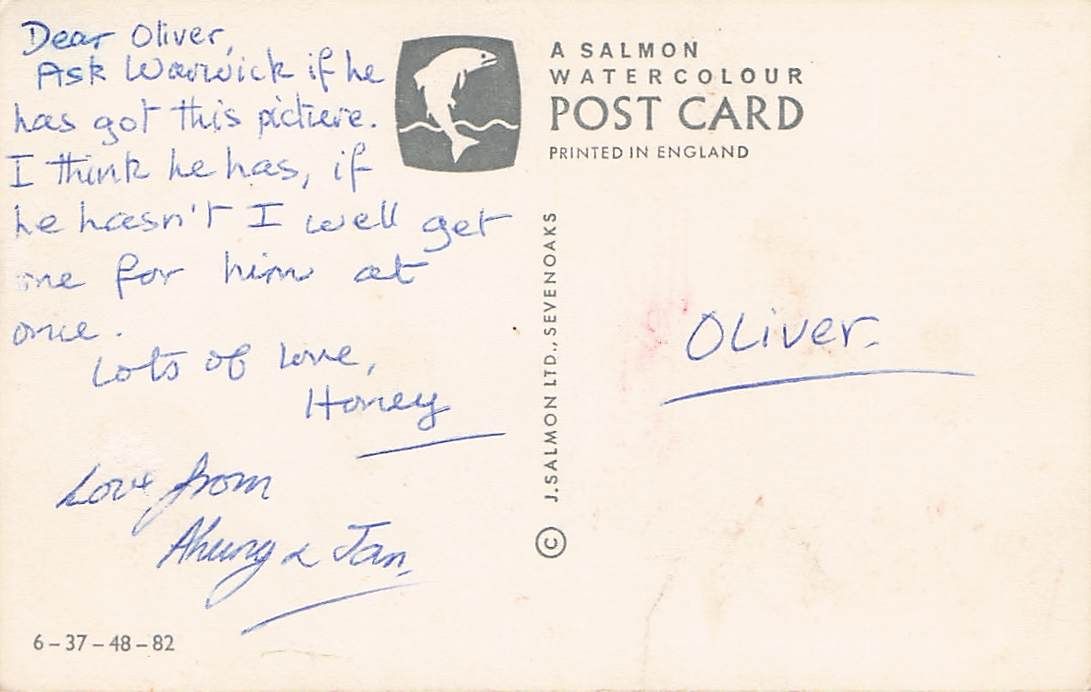 Dear Oliver,
Ask Warwick if he
has got this picture.
I think he has, if
he hasn't I well get
one for him at
once.
Lots of love,
Honey
Love from
& Jan.
6-37-48-82
A SALMON
WATERCOLOUR
POST CARD
PRINTED IN ENGLAND
© J. SALMON LTD., SEVENOAKS
Oliver.